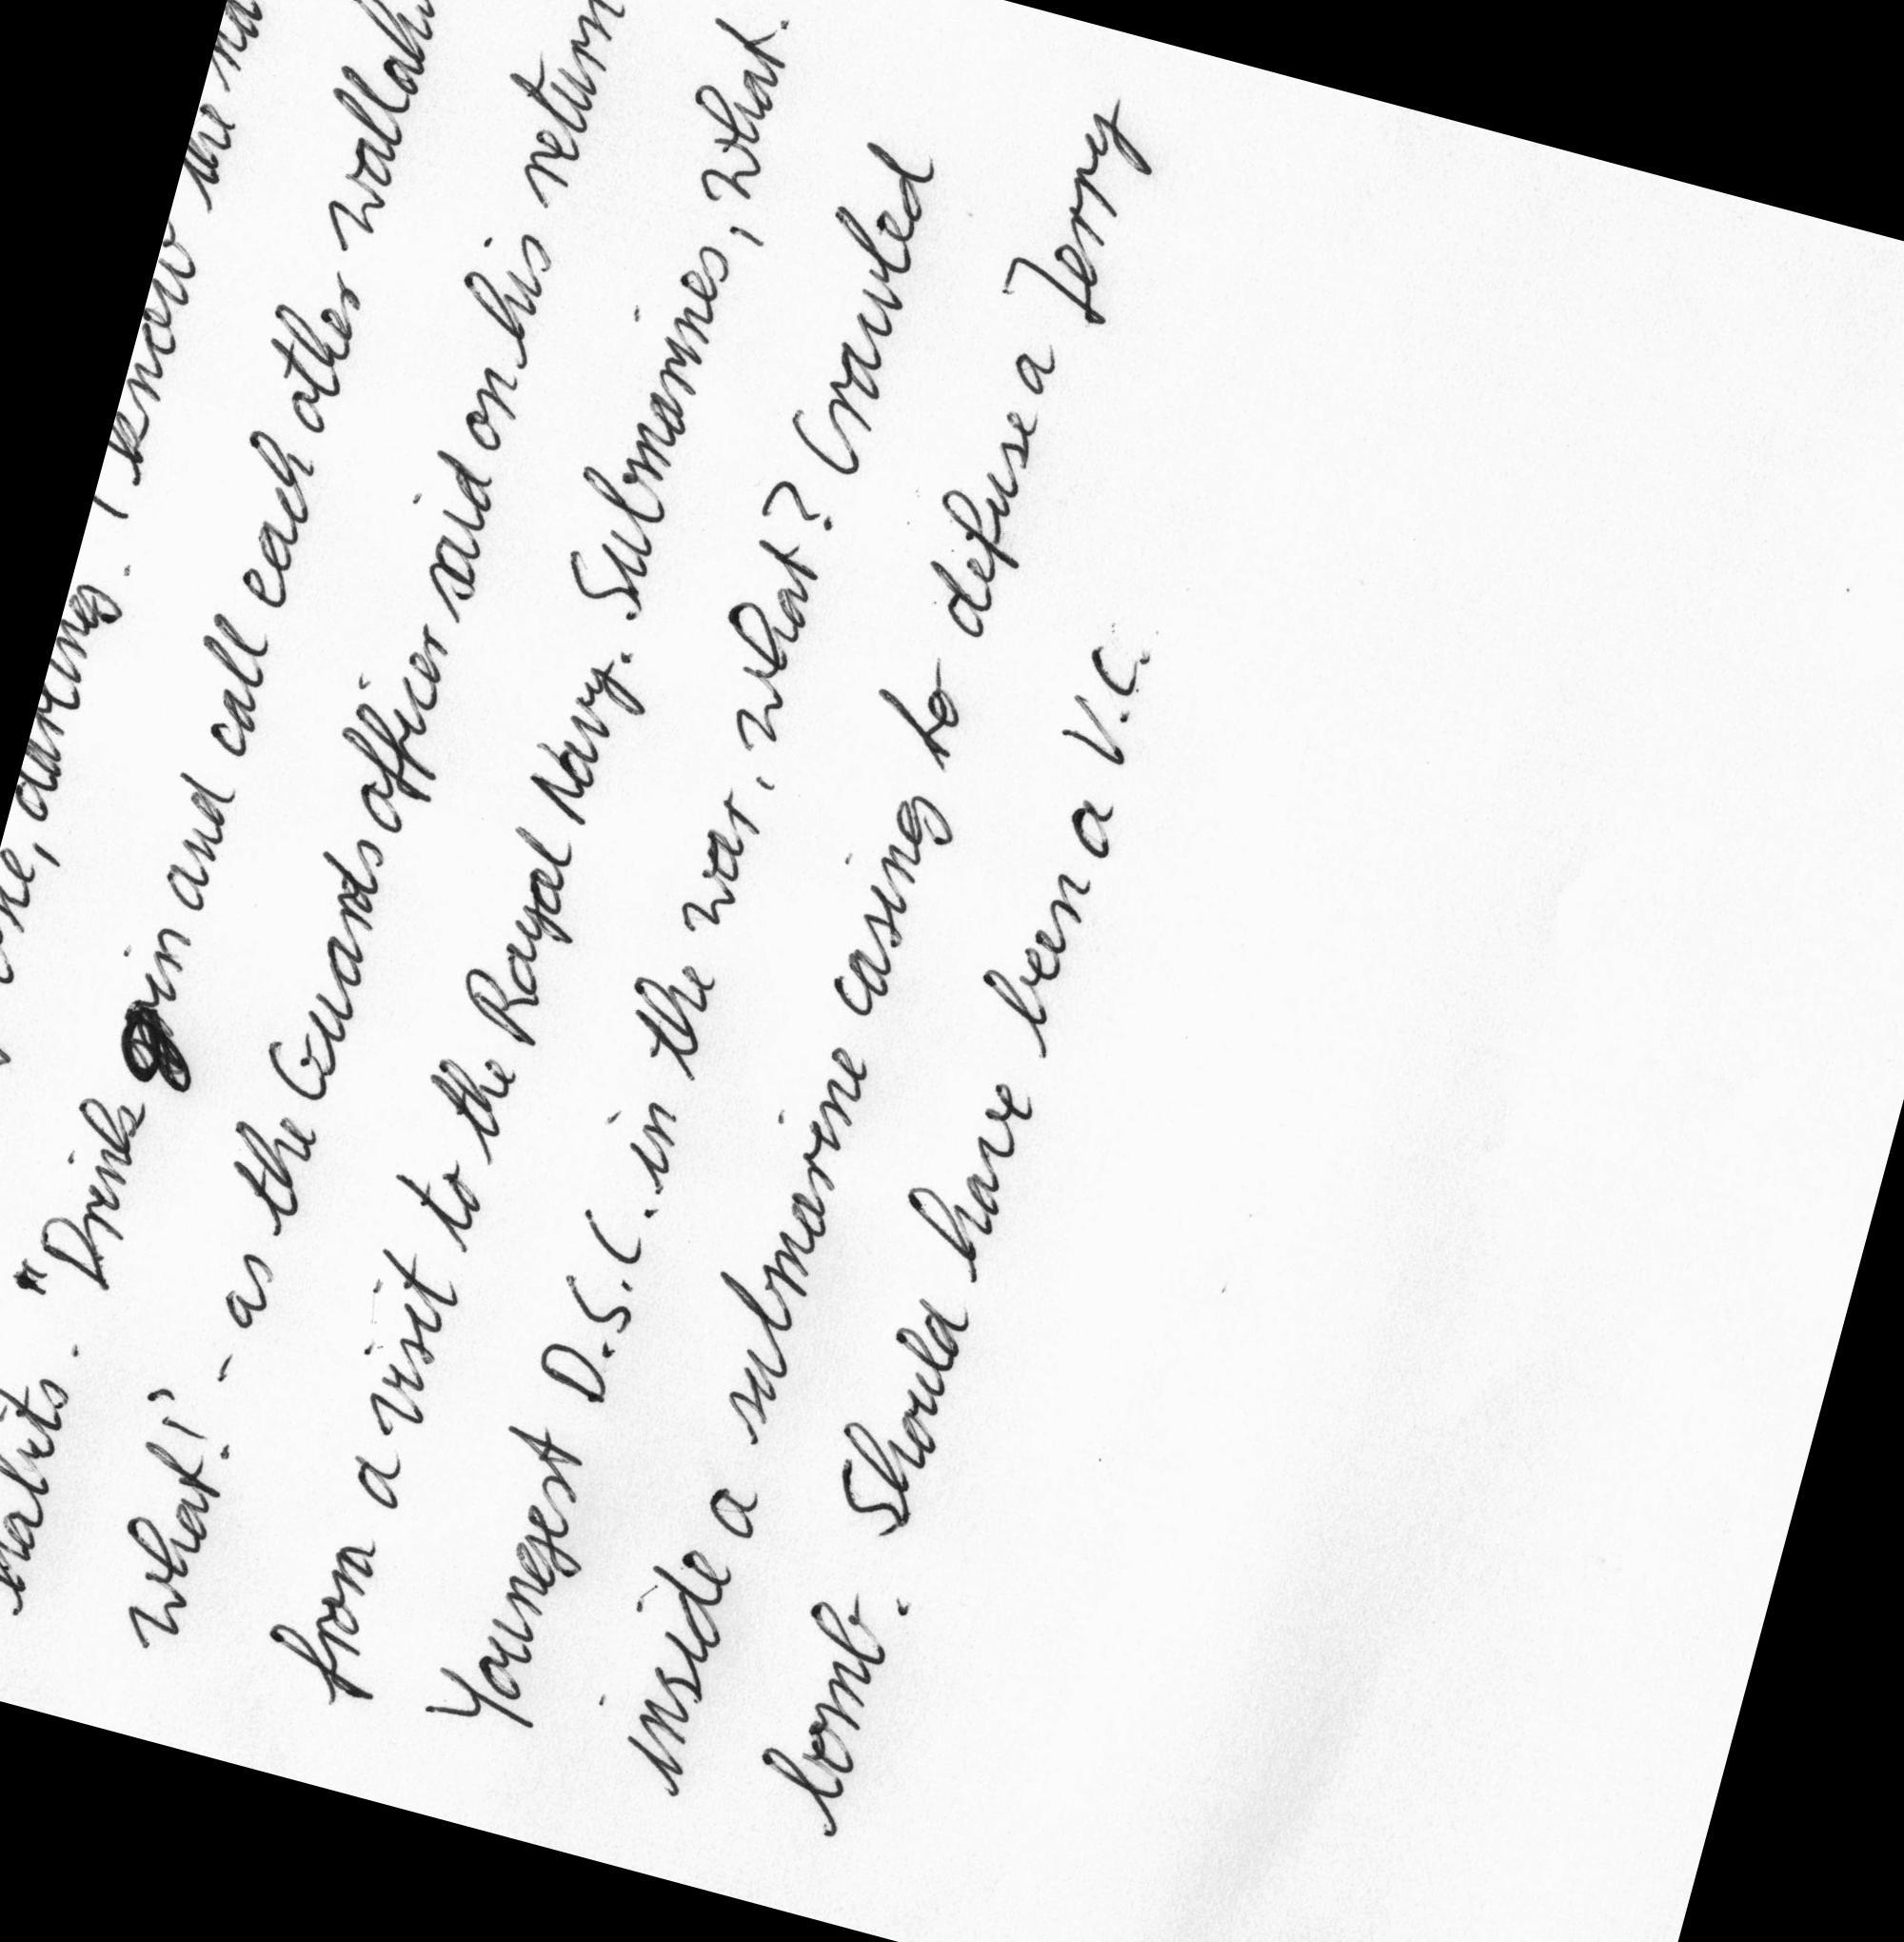 darlings. I knew the
habits. "Drinks gin and call each other wallahs
what!" - as the Guards officer said on his return
from a visit to the Royal Navy. Submarines, what.
Youngest D.S.C. in the war, what? Crawled
inside a submarine casing to defuse a Jerry
bomb. Should have been a V.C.